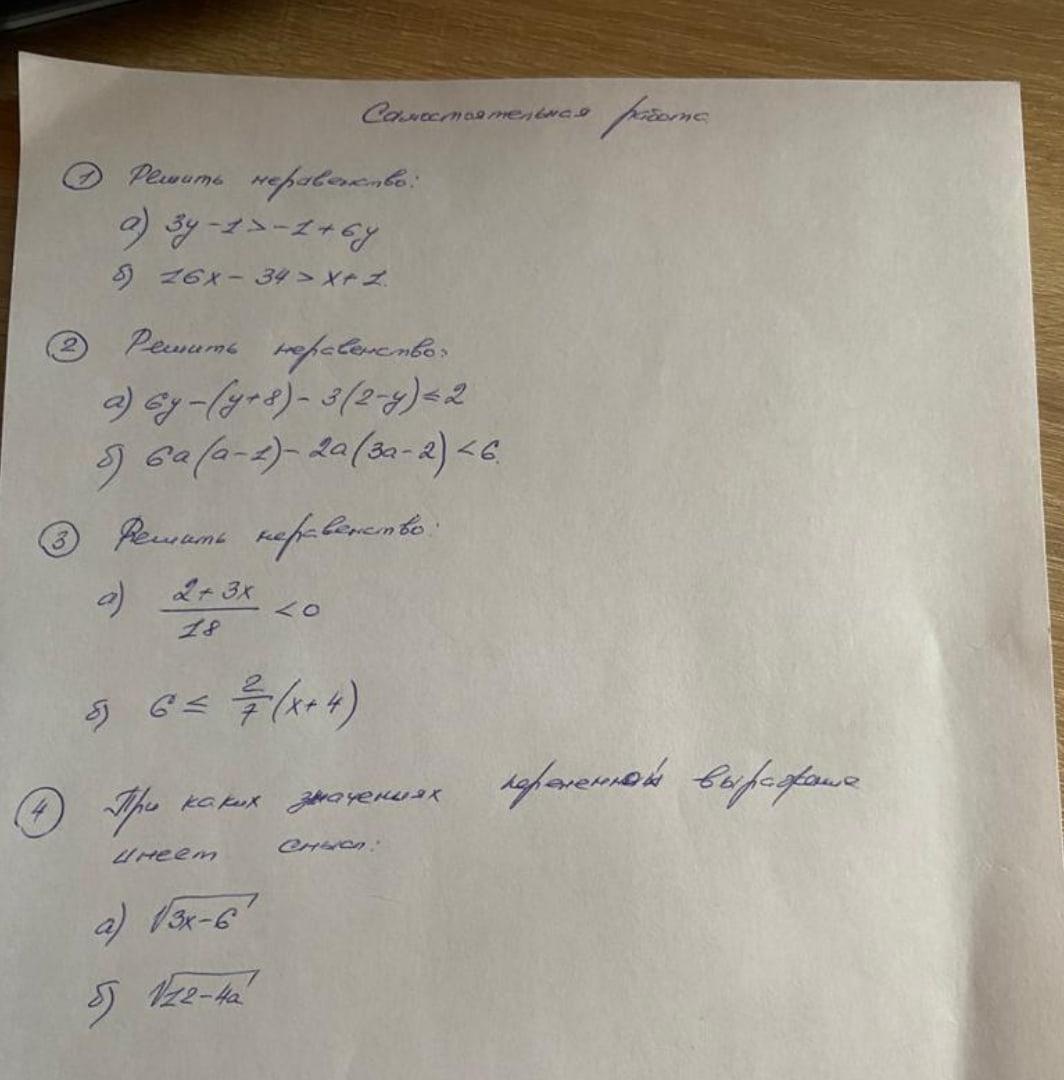 Самостоятельная работа
① Решить неравенство:
а) 3y - 1 > -1 + 6y
б) 16x - 34 > x + 1.
② Решить неравенство:
а) 6y - (y + 8) - 3(2 - y) ≤ 2
б) 6a(a - 1) - 2a(3a - 2) < 6.
③ Решить неравенство:
а) (2 + 3x)/18 < 0
б) 6 ≤ 2/7 (x + 4)
④ При каких значениях переменной выражение
имеет смысл:
а) √(3x - 6)
б) √(12 - 4a)